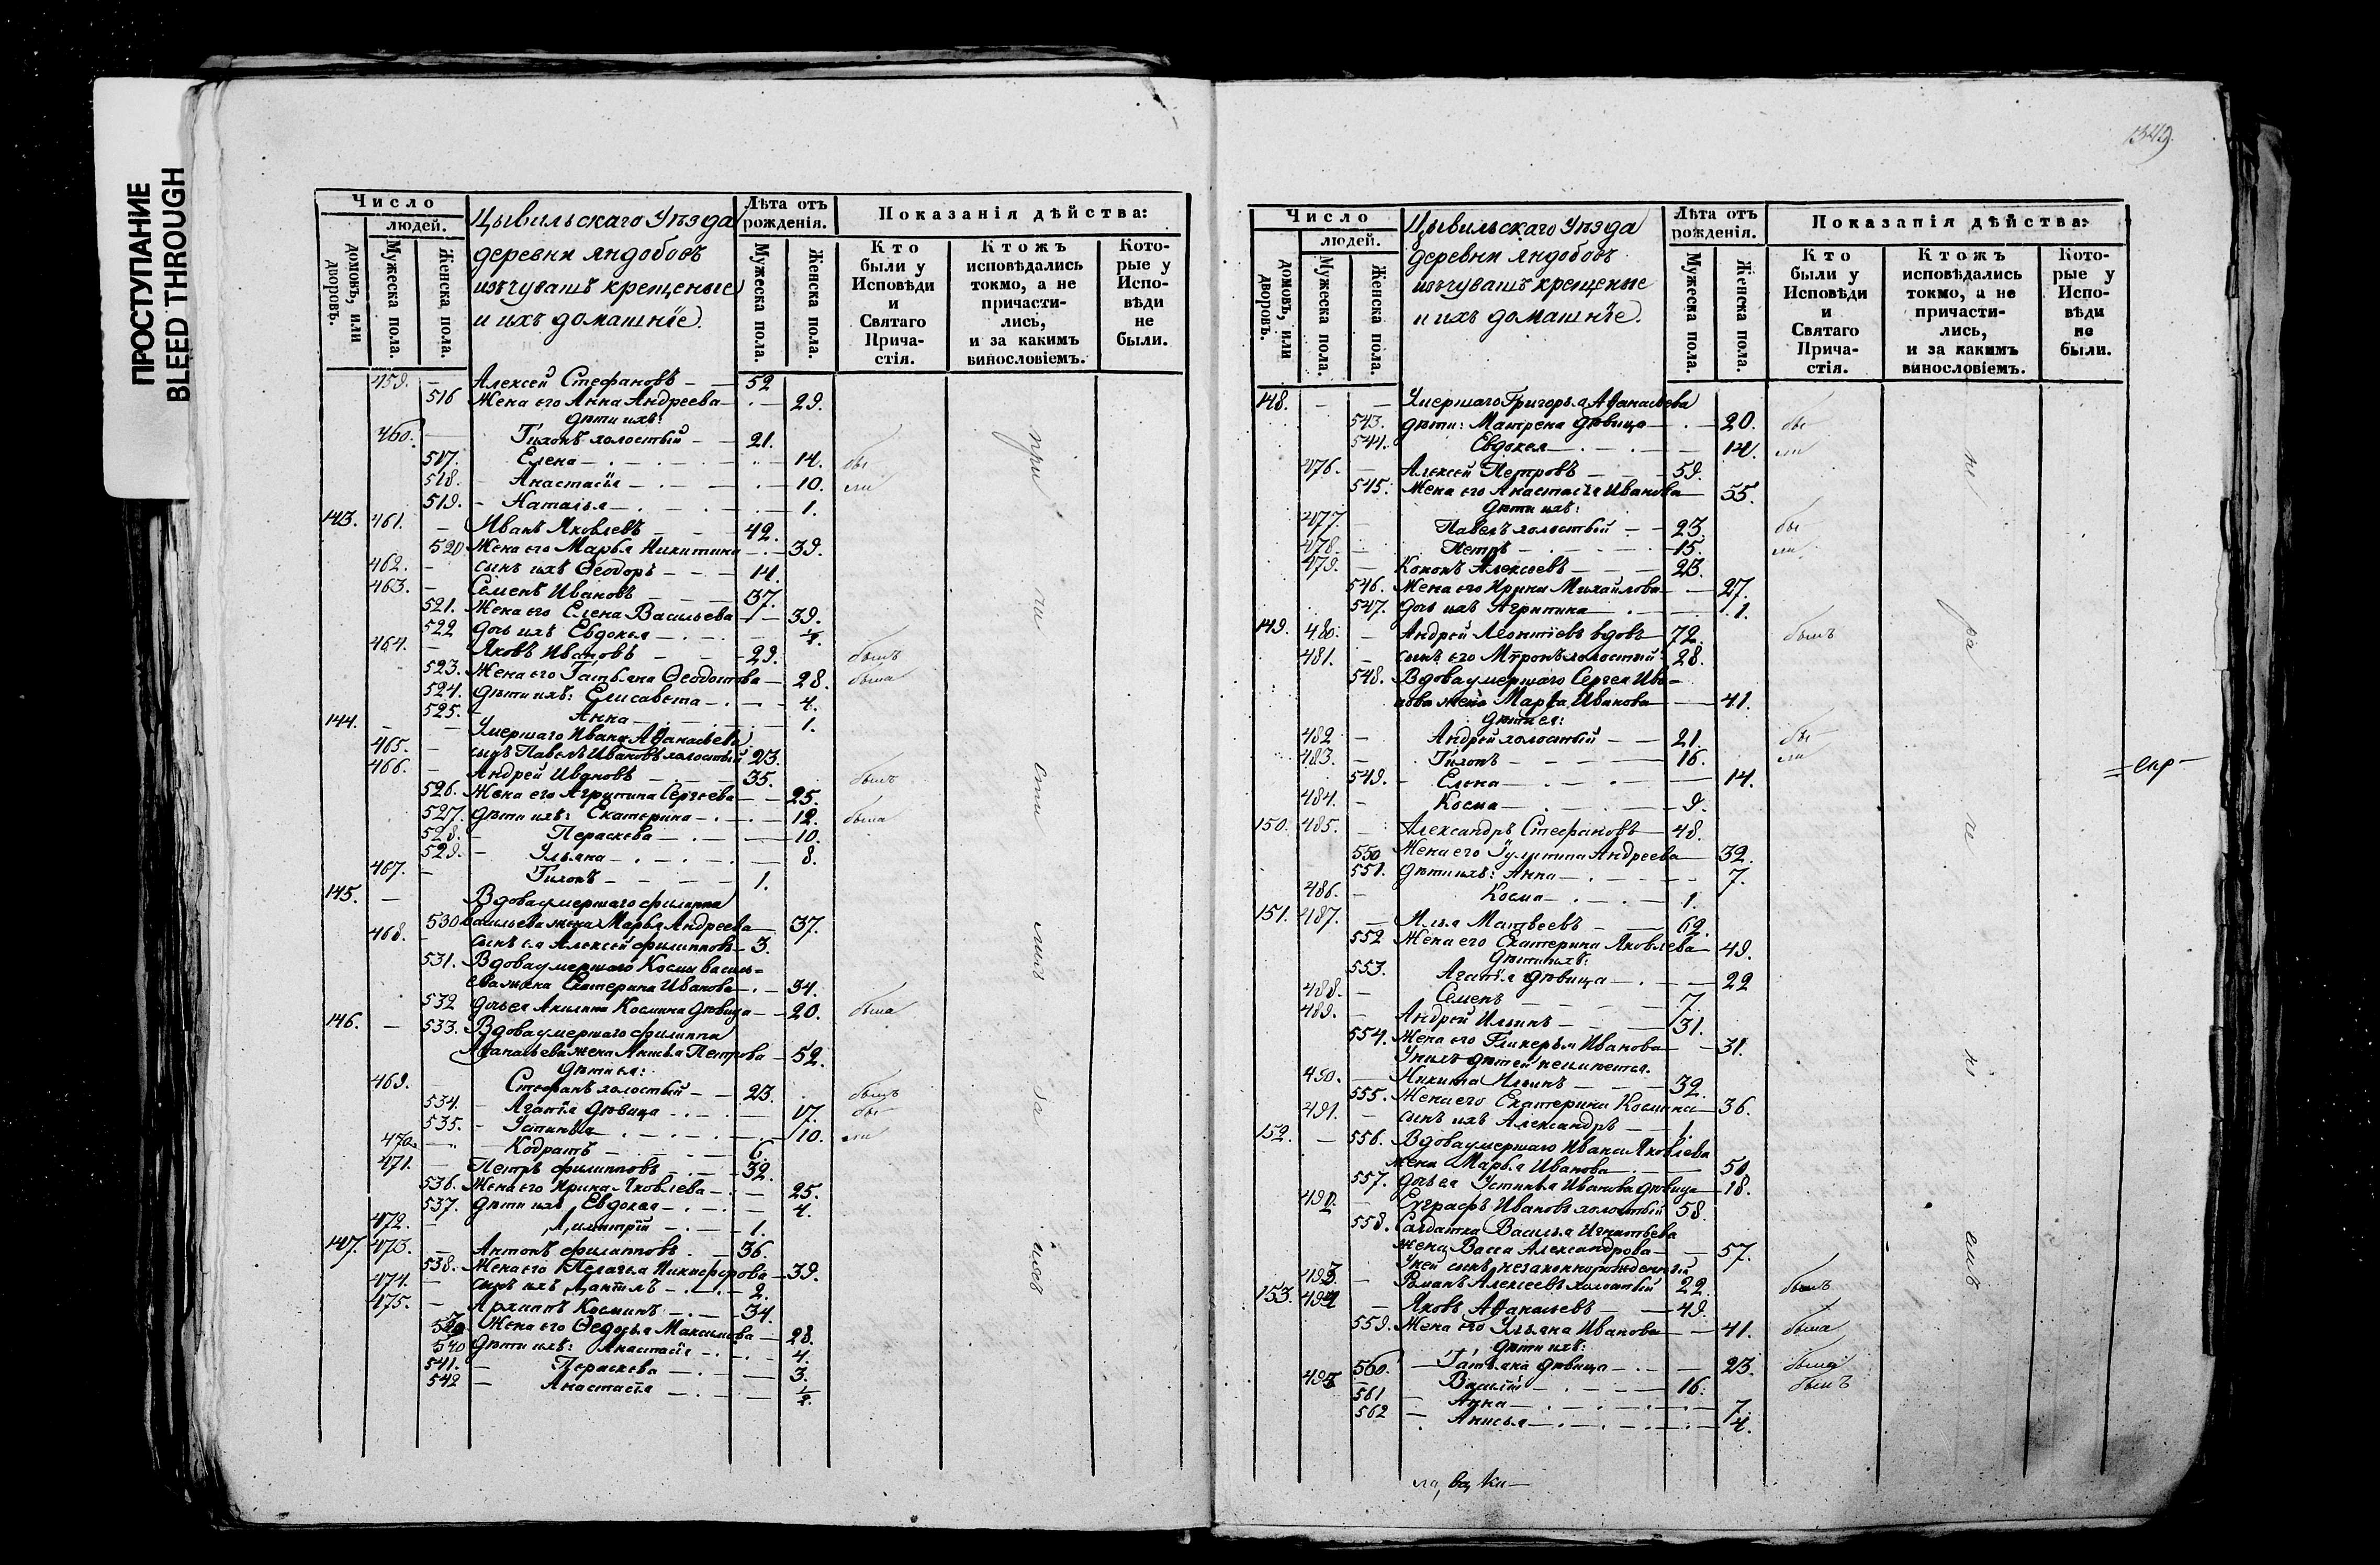 ПРОСТУПАНИЕ
BLEED THROUGH
Число
людей.
домовъ, или дворовъ.
Мужеска пола.
Женска пола.
Цывильскаго Уѣзда
деревни Яндобовъ
изъ чувашъ крещеные
и ихъ домашнїе.
Лѣта отъ рожденія.
Мужеска пола.
Женска пола.
Показанія дѣйства:
Кто были у Исповѣди и Святаго Прича-стія.
Ктожъ исповѣдались токмо, а не причасти-лись, и за какимъ винословіемъ.
Кото-рые у Испо-вѣди не были.
459. – Алексей Стефановъ – – 52
516 Жена его Анна Андреева – 29.
дѣти ихъ:
460. – Тихонъ холостый – – 21.
517. Елена – 14. бы
518. Анастасїя – 10. ли
519. – Наталья – 1.
143. 461. – Иванъ Яковлевъ – – 42.
520 Жена его Марья Никитина – 39.
462. – сынъ ихъ Ѳеодоръ – – 14.
463. – Семенъ Ивановъ – – 37.
521. Жена его Елена Васильева – 39.
522 дочь ихъ Евдокея –
464. – Яковъ Ивановъ – – 29. былъ
523. Жена его Татьяна Ѳеодотова – 28. была
524. дѣти ихъ: Елисавета – 4.
525. – Анна – 1.
144. – – Умершаго Ивана Аѳанасьева
465. – сынъ Павелъ Ивановъ холостый 23.
466. – Андрей Ивановъ – – 35. былъ
526. Жена его Агрипина Сергѣева – 25.
527. дѣти ихъ: Екатерина – 12. была
528. – Пераскева – 10.
529. – Ульяна – 8.
467. – Тихонъ – – 1.
145. – Вдова умершаго Филиппа
530 Васильева жена Марья Андреева – 37.
468. – сынъ ея Алексѣй Филипповъ – 3.
531. Вдова умершаго Космы Василь=
ева жена Екатерина Иванова – 34.
532 дочь ея Акилина Космина дѣвица – 20. была
146. – 533. Вдова умершаго Филиппа
Аѳанасьева жена Анисья Петрова – 52.
дѣти ея:
469. Стефанъ холостый – – 23. былъ
534. – Агапїя дѣвица – 17. бы
535. – Устинья – 10. ли
470. – Кодратъ – 6.
471. – Петръ Филипповъ – 32.
536. Жена его Ирина Яковлева – 25.
537. дѣти ихъ Евдокея – 4.
472. – Димитрїй – 1.
147. 473. – Антонъ Филипповъ – 36.
538. Жена его Пелагья Никифорова – 39.
474. – сынъ ихъ Данїилъ – 2.
475. – Архипъ Косминъ – 34.
Жена его Ѳедосья Максимова – 28.
540 дѣти ихъ: Анастасїя – 4.
541. – Пераскева – 3.
542 – Анастасїя – 1/2.
1349.
Число
людей.
домовъ, или дворовъ.
Мужеска пола.
Женска пола.
Цывильскаго Уѣзда
деревни Яндобовъ
изъ чувашъ крещеные
и ихъ домашнїе.
Лѣта отъ рожденія.
Мужеска пола.
Женска пола.
Показанія дѣйства:
Кто были у Исповѣди и Святаго Прича-стія.
Ктожъ исповѣдались токмо, а не причасти-лись, и за какимъ винословіемъ.
Кото-рые у Испо-вѣди не были.
148. – – Умершаго Григорья Аѳанасьева
543. дѣти: Матрена дѣвица – 20. бы
544. Евдокея – 14. ли
476. – Алексей Петровъ – – 59.
545. Жена его Анастасїя Иванова – 55.
дѣти ихъ:
477. – Павелъ холостый – – 23. бы
478. – Петръ – 15. ли
479. – Кононъ Алексеевъ – 23.
546. Жена его Ирина Михайлова – 27.
547. дочь ихъ Агрипина – 1.
149. 480. – Андрей Леонтїевъ вдовъ – 72. былъ
481. – сынъ его Миронъ холостый 28.
548. Вдова умершаго Сергея Ива=
нова жена Марѳа Иванова – 41.
дѣти ея:
482 – Андрей холостый – – 21. бы
483. – Тихонъ – – 16. ли
549. – Елена – 14.
484. – Косма – 9.
150. 485. – Александръ Стефановъ – 48.
550 Жена его Андреева – 32.
551. дѣти ихъ: Анна – 7.
486. – Косма – 1.
151. 487. – Илья Матвеевъ – 62.
552 Жена его Екатерина Яковлева – 49.
дѣти ихъ:
553. Агапїя дѣвица – 22
488. – Семенъ – 7.
489. – Андрей Ильинъ – 31.
554. Жена его Гликерья Иванова – 31.
У нихъ дѣтей неимѣется.
490. – Никита Ильинъ – 32.
555. Жена его Екатерина Космина – 36.
491. – сынъ ихъ Александръ – 1.
152. – 556. Вдова умершаго Ивана Яковлева
жена Марья Иванова – 50.
557. дочь ея Устинья Иванова дѣвица – 18.
492. – Евграфъ Ивановъ холостый 58.
558. Салдатка Василья Игнатьева
жена Васса Александрова – 57.
У ней сынъ незаконнорожденный
493. – Романъ Алексеевъ холостый 22. былъ
153. 494 – Яковъ Аѳанасьевъ – 49.
559. Жена его Ульяна Иванова – 41. была
дѣти ихъ:
560. – Татьяна дѣвица – 23. была
495 – Василїй – 16. былъ
561 – Анна – 7.
562 – Анисья – 4.